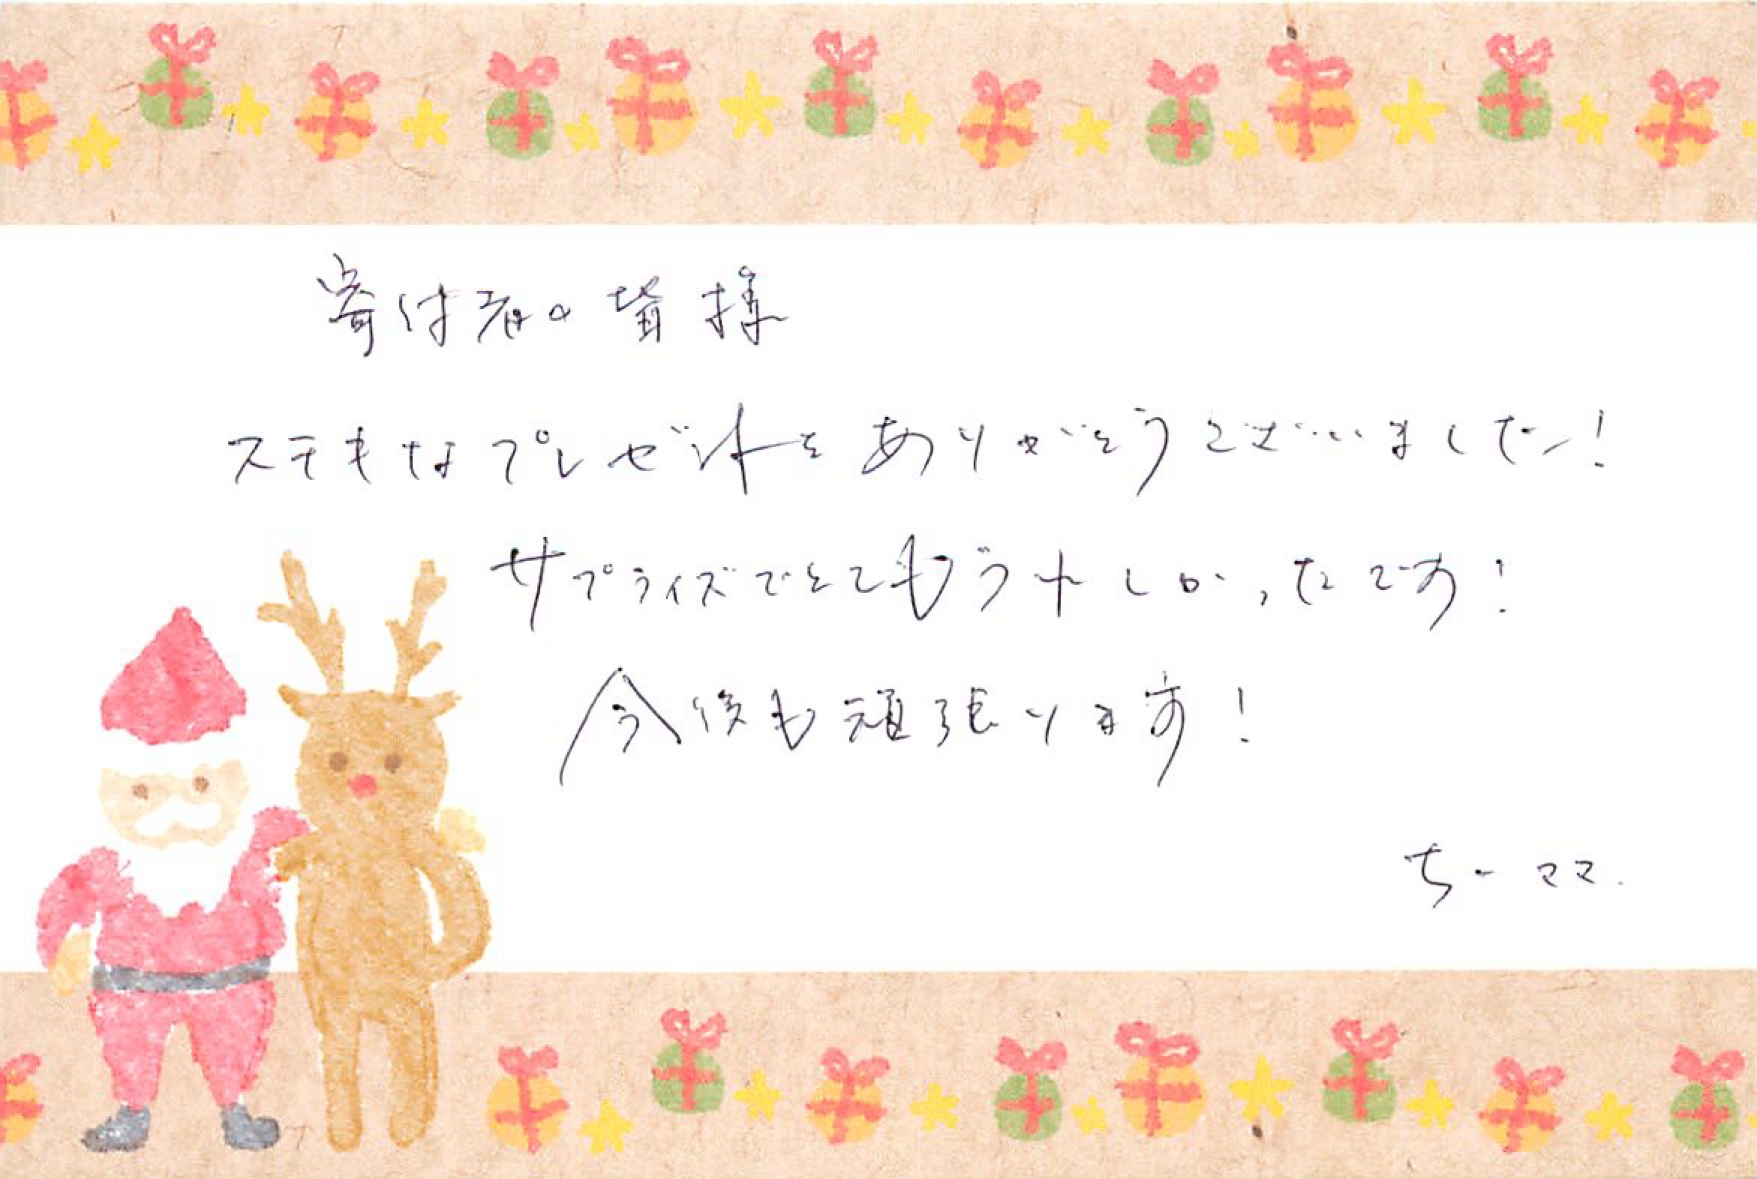 寄付者の皆様
ステキなプレゼントをありがとうございました!
サプライズでとてもうれしかったです!
今後も頑張ります!
ちーママ.